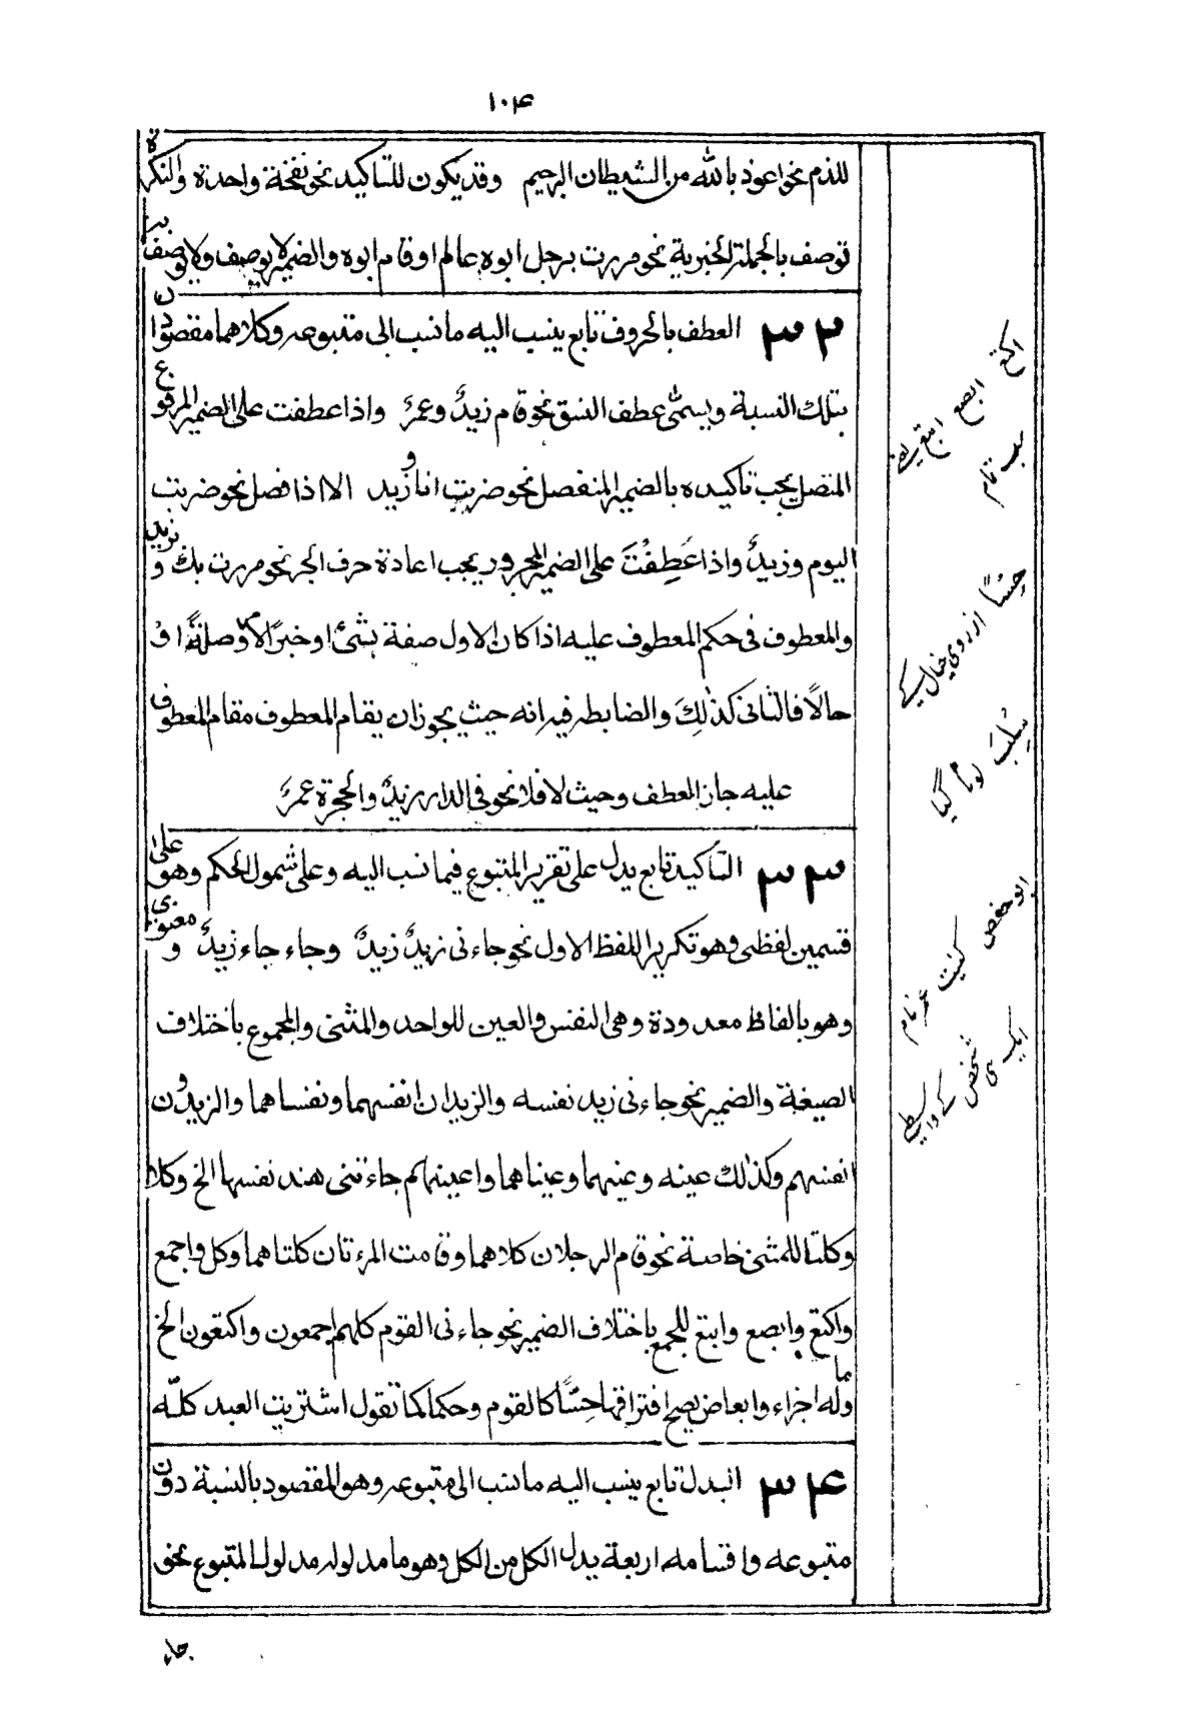 ١٠۴
للذم نحو اعوذ بالله من الشيطان الرجيم وقد يكون للتاكيد نحو نفخة واحدة والنكرة
توصف بالجملة الخبرية نحو مررت برجل ابوه عالم او قام ابوه والضمير لا يوصف ولا يوصف به
٣٢ العطف بالحروف تابع ينسب اليه ما نسب الى متبوعه وكلاهما مقصودان
بتلك النسبة ويسمّٰى عطف النسق نحو قام زيدٌ وعمرٌ واذا عطفت على الضمير المرفوع
المتصل يجب تاكيده بالضمير المنفصل نحو ضربت انا وزيد الا اذا فصل نحو ضربت
اليوم وزيدٌ واذا عَطِفْتَ على الضمير المجرور يجب اعادة حرف الجر نحو مررت بك و بزيد
والمعطوف فى حكم المعطوف عليه اذا كان الاول صفة بشئ او خبرًا لامر او صلةً اوْ
حالًا فالثانى كذٰلِكَ والضابطه فيه انه حيث يجوز ان يقام المعطوف مقام المعطوف
عليه جاز العطف وحيث لا فلا نحو فى الدار زيدٌ والحجرة عمرٌ
٣٣ التأكيد تابع يدل على تقرير المتبوع فيما نسب اليه وعلى شمول الحكم وهو علىٰ
قسمين لفظى وهو تكرير اللفظ الاول نحو جاءنى زيدٌ زيدٌ وجاء جاء زيدٌ و معنوى
وهو بالفاظ معدودة وهى النفس والعين للواحد والمثنى والمجموع باختلاف
الصيغة والضمير نحو جاءنى زيد نفسه والزيدان انفسهما ونفساهما والزيدون
انفسهم وكذٰلك عينه وعينهما وعيناهما واعينهم جاءتنى هند نفسها الخ وكلا
وكلتا للمثنى خاصة نحو قام الرجلان كلاهما وقامت المرءتان كلتاهما وكل واجمع
واكتع وابصع وابتع للجمع باختلاف الضمير نحو جاءنى القوم كلهم اجمعون واكتعون الخ
وما له اجزاء وابعاض يصح افتراقها حِسًّا كالقوم وحكما كما تقول اشتريت العبد كلّه
٣۴ البدل تابع ينسب اليه ما نسب الى متبوعه وهو المقصود بالنسبة دون
متبوعه واقسامه اربعة بدل الكل من الكل وهو ما مدلوله مدلول المتبوع نحو
اكتع ابصع ابتع
سب قام
حِسًّا از روى خيال كے
سُلِبَ لوٹا گيا
ابو حفص كنيت عمر نام
ايک ہى شخص كے واسطے
جاء